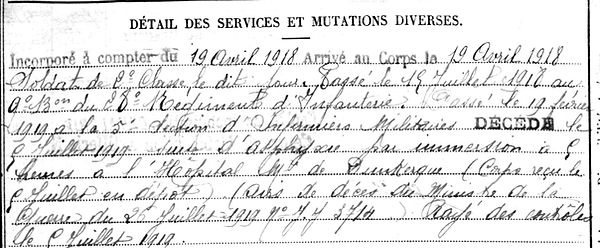 DÉTAIL DES SERVICES ET MUTATIONS DIVERSES.
Incorporé à compter du 19 Avril 1918 Arrivé au Corps le 19 Avril 1918
Soldat de 2e Classe le dit jour. Passé le 15 Juillet 1918 au
9e Bon du 8e Régiment d'Infanterie. Passé le 19 février
1919 à la 5e Section d'Infirmiers Militaires DÉCÉDÉ le
Juillet 1919 suite d'asphyxie par immersion à
heures à l'Hôpital Mre de Dunkerque (Corps reçu le
Juillet en dépôt) (avis de décès du Ministre de la
Guerre du 26 Juillet 1919 No 3714 Rayé des contrôles
le Juillet 1919.